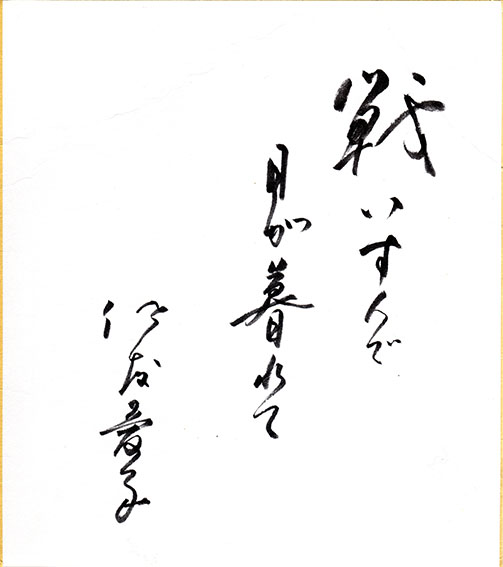 戦いすんで
日が暮れて
愛子